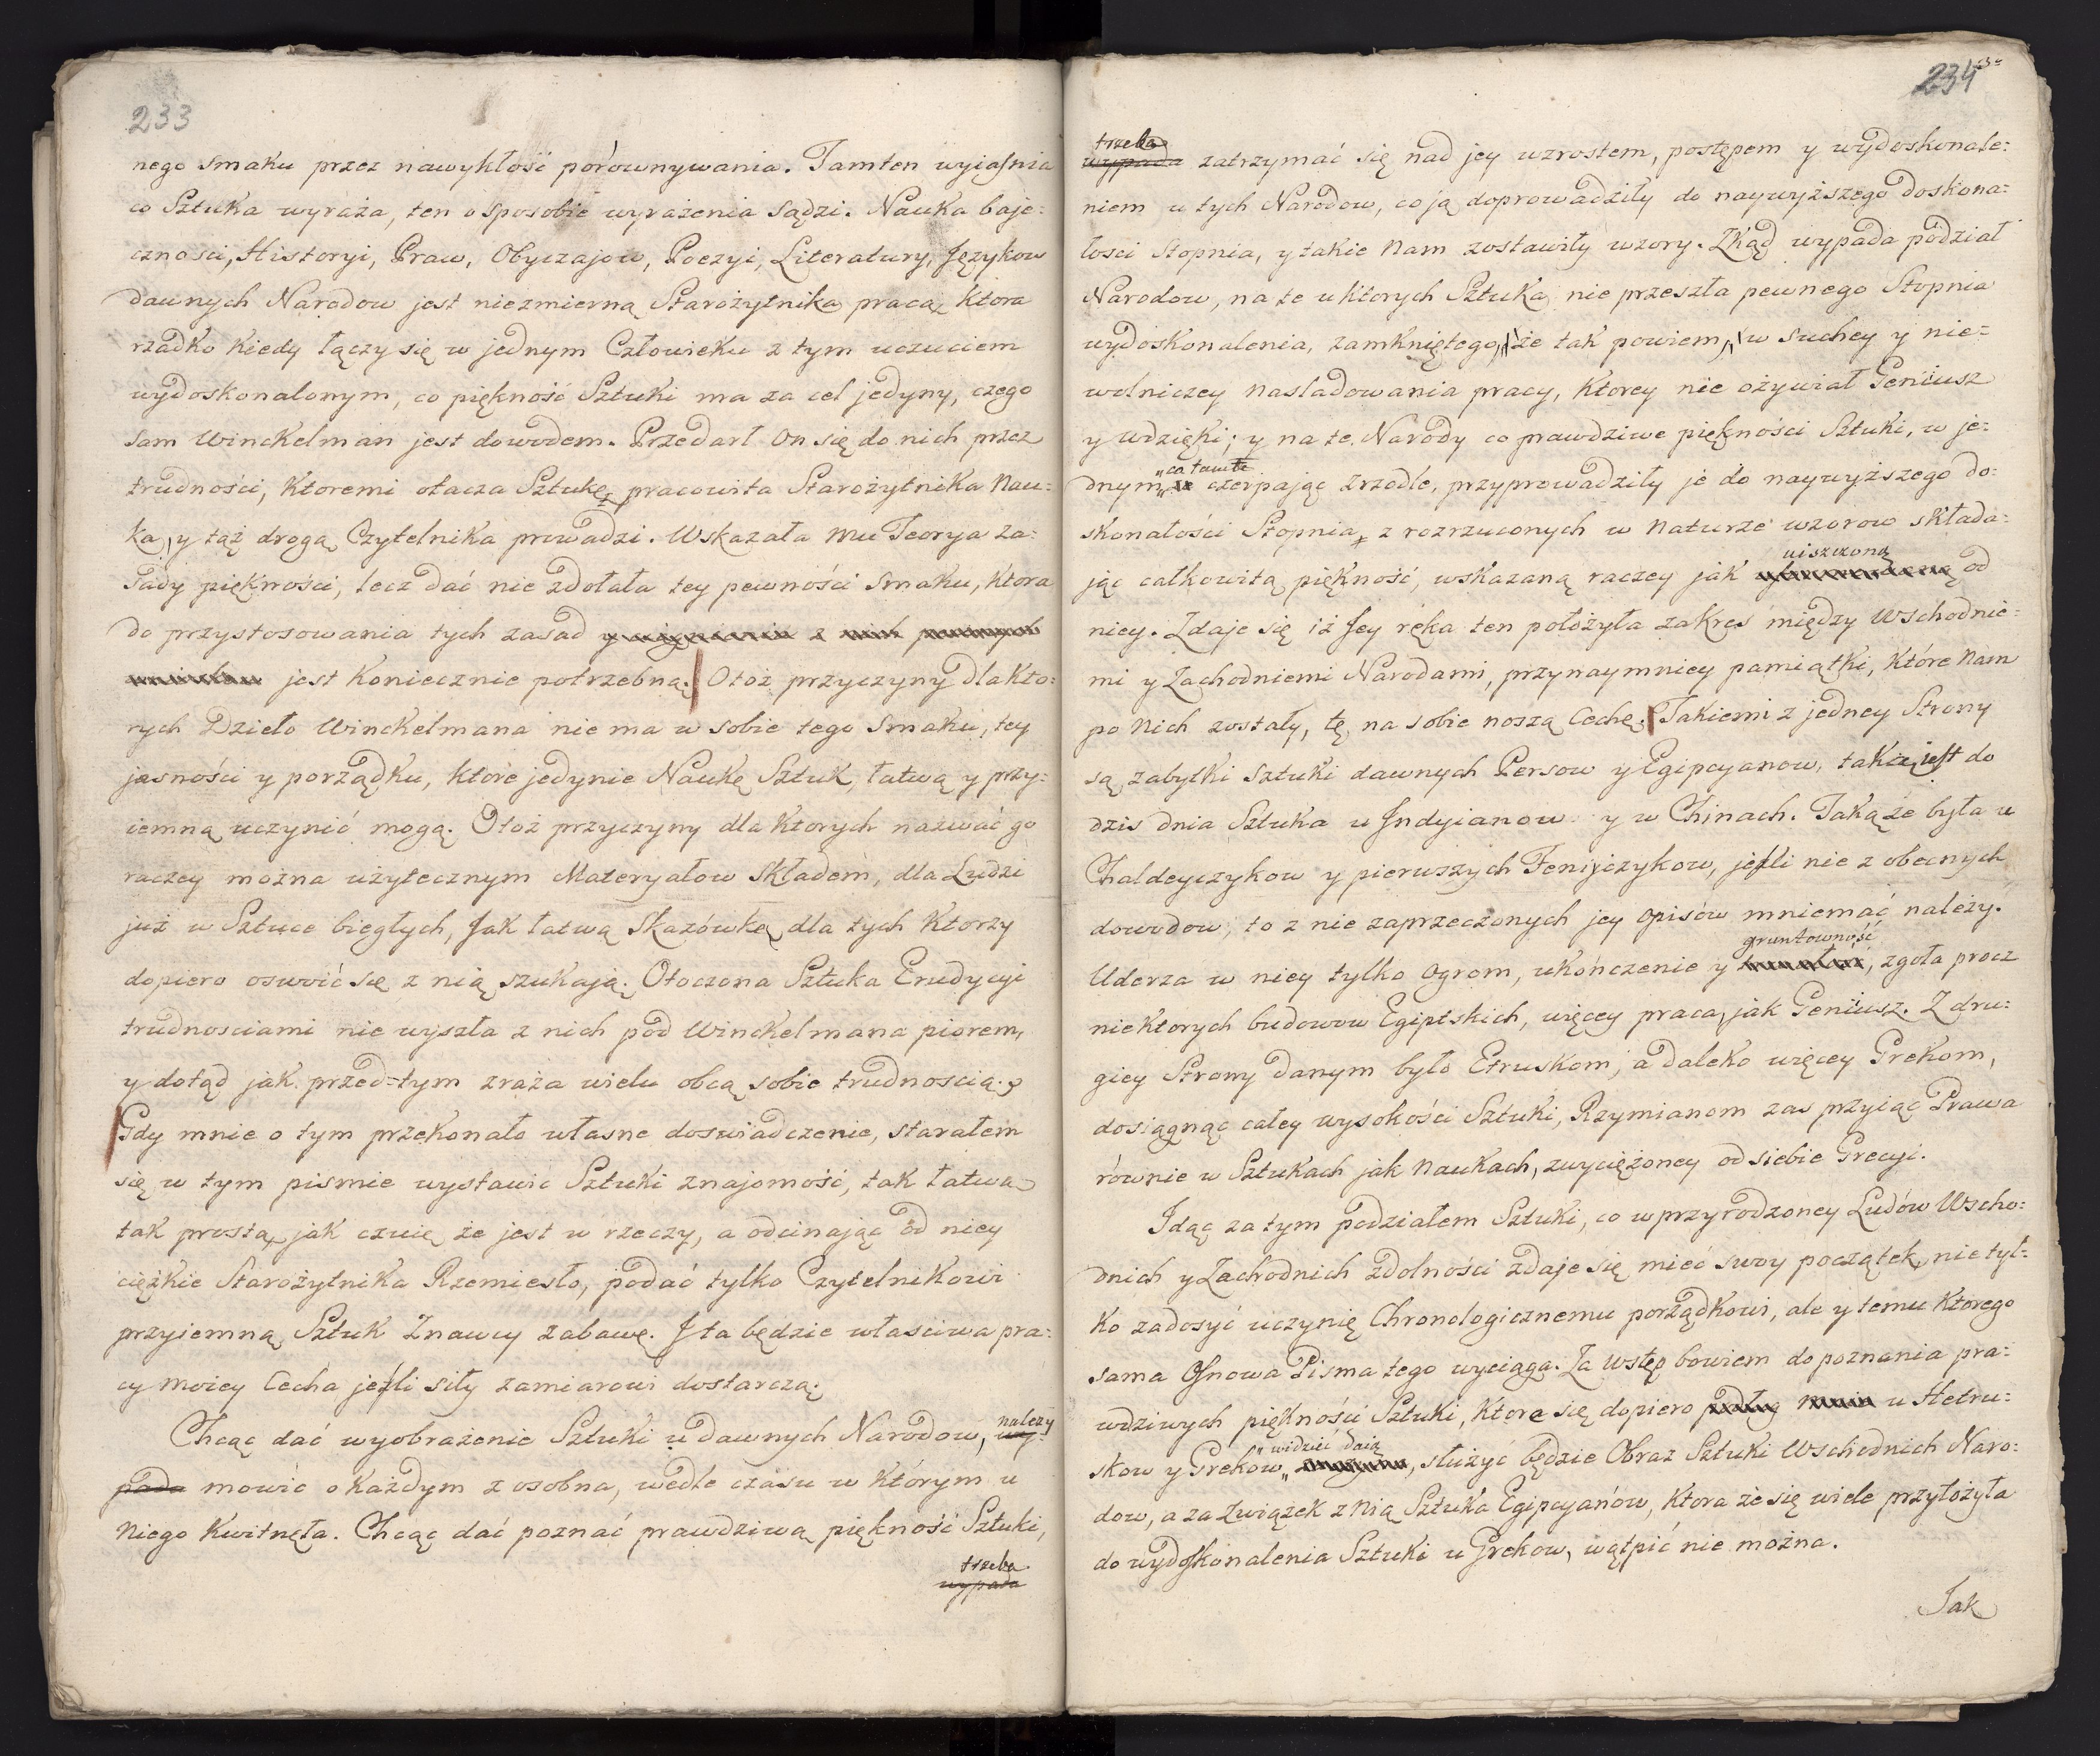 233
nego smaku przez nawykłość porównywania. Tamten wyiaſnia
co Sztuka wyraża, ten o sposobie wyrażenia sądzi. Nauka baje:
cznosci, Historyi, Praw, Obyczajow, Poezyi, Literatury, Językow
dawnych Narodow jest niezmierną Starożytnika pracą, ktora
rzadko kiedy łączy się w jednym Człowieku z tym uczuciem
wydoskonalonym, co piękność Sztuki ma za cel jedyny, czego
sam Winckelman jest dowodem. Przedarł on się do nich przez
trudności, ktoremi otacza Sztukę, pracowita Starożytnika Nau:
ka, y tąż drogą Czytelnika prowadzi. Wskazała mu Teorya za:
sady piękności, lecz dać nie zdołała tey pewności smaku, ktora
do przystosowania tych zasad
jest koniecznie potrzebną. Otoż przyczyny dla kto:
rych Dzieło Winckelmana nie ma w sobie tego smaku, tey
jasności y porządku, które jedynie Naukę Sztuk, łatwą y przy:
iemną uczynić mogą. Otoż przyczyny dla ktorych nazwać go
raczey można użytecznym Materyałow składem, dla Ludzi
już w Sztuce biegłych, jak łatwą skazówką dla tych ktorzy
dopiero oswoić się z nią szukają. Otoczona Sztuka Erudycyi
trudnosciami nie wyszła z nich pod Winckelmana piorem,
y dotąd jak przed=tym zraża wielu obcą sobie trudnoscią.
Gdy mnie o tym przekonało własne doswiadczenie, starałem
się w tym pismie wystawić Sztuki znajomość, tak łatwą
tak prostą, jak czuię że jest w rzeczy, a odcinając od niey
ciężkie Starożytnika Rzemiesło, podać tylko Czytelnikowi
przyiemną Sztuk Znawcy zabawę. I ta będzie własciwa pra:
cy moiey Cecha jeſli siły zamiarowi dostarczą.
Chcąc dać wyobrażenie Sztuki u dawnych Narodow, należy wy:
pada mowić o każdym z osobna, wedle czasu w którym u
niego kwitnęła. Chcąc dać poznać prawdziwą piękność Sztuki,
trzeba
wypada
234
trzeba
wypada zatrzymać się nad jey wzrostem, postępem y wydoskonale:
niem u tych Narodow, co ją doprowadziły do naywyższego doskona:
łosci stopnia, y takie nam zostawiły wzory. Zkąd wypada podział
Narodow, na te u ktorych Sztuka nie przeszła pewnego Stopnia
wydoskonalenia, zamkniętego, że tak powiem, w suchey y nie=
wolniczey nasladowania pracy, ktorey nie ożywiał Geniusz
y wdzięki; y na te Narody co prawdziwe piękności Sztuki, w je:
dnym co tamte czerpając zrzodle, przyprowadziły je do naywyższego do:
skonałości Stopnia, z rozrzuconych w naturze wzorow składa:
jąc całkowitą piękność, wskazaną raczey jak uiszczoną od
niey. Zdaje się iż Jey ręka ten położyła zakres między Wschodnie:
mi y Zachodniemi Narodami, przynaymniey pamiątki, które nam
po nich zostały, tę na sobie noszą Cechę. Takiemi z jedney Strony
są zabytki Sztuki dawnych Persow y Egipcyanow, taką iest do
dzis dnia Sztuka u Indyianow y w Chinach. Takąże była u
Chaldeyczykow y pierwszych Fenijczykow, jeſli nie z obecnych
dowodow, to z nie zaprzeczonych jey opisów mniemać należy.
Uderza w niey tylko ogrom, ukończenie y gruntowność, zgoła procz
niektorych budowow Egiptskich, więcey praca, jak Geniusz. Z dru:
giey Strony danym było Etruskom, a daleko więcey Grekom,
dosiągnąc całey wysokości Sztuki, Rzymianom zas przyiąc Prawa
równie w Sztukach jak naukach, zwyciężoney od siebie Grecyi.
Idąc za tym podziałem Sztuki, co w przyrodzoney Ludów Wscho:
dnich y Zachodnich zdolności zdaje się mieć swoy początek, nie tyl:
ko zadosyć uczynię Chronologicznemu porządkowi, ale y temu ktorego
sama Osnowa Pisma tego wyciąga. Za wstęp bowiem do poznania pra:
wdziwych piękności Sztuki, ktore się dopiero u Hetru:
skow y Grekow widzieć daią, służyć będzie Obraz Sztuki Wschodnich Naro:
dow, a za Związek z nią Sztuka Egipcyanow, ktora że się wiele przyłożyła
do wydoſkonalenia Sztuki u Grekow, wątpić nie można.
Jak